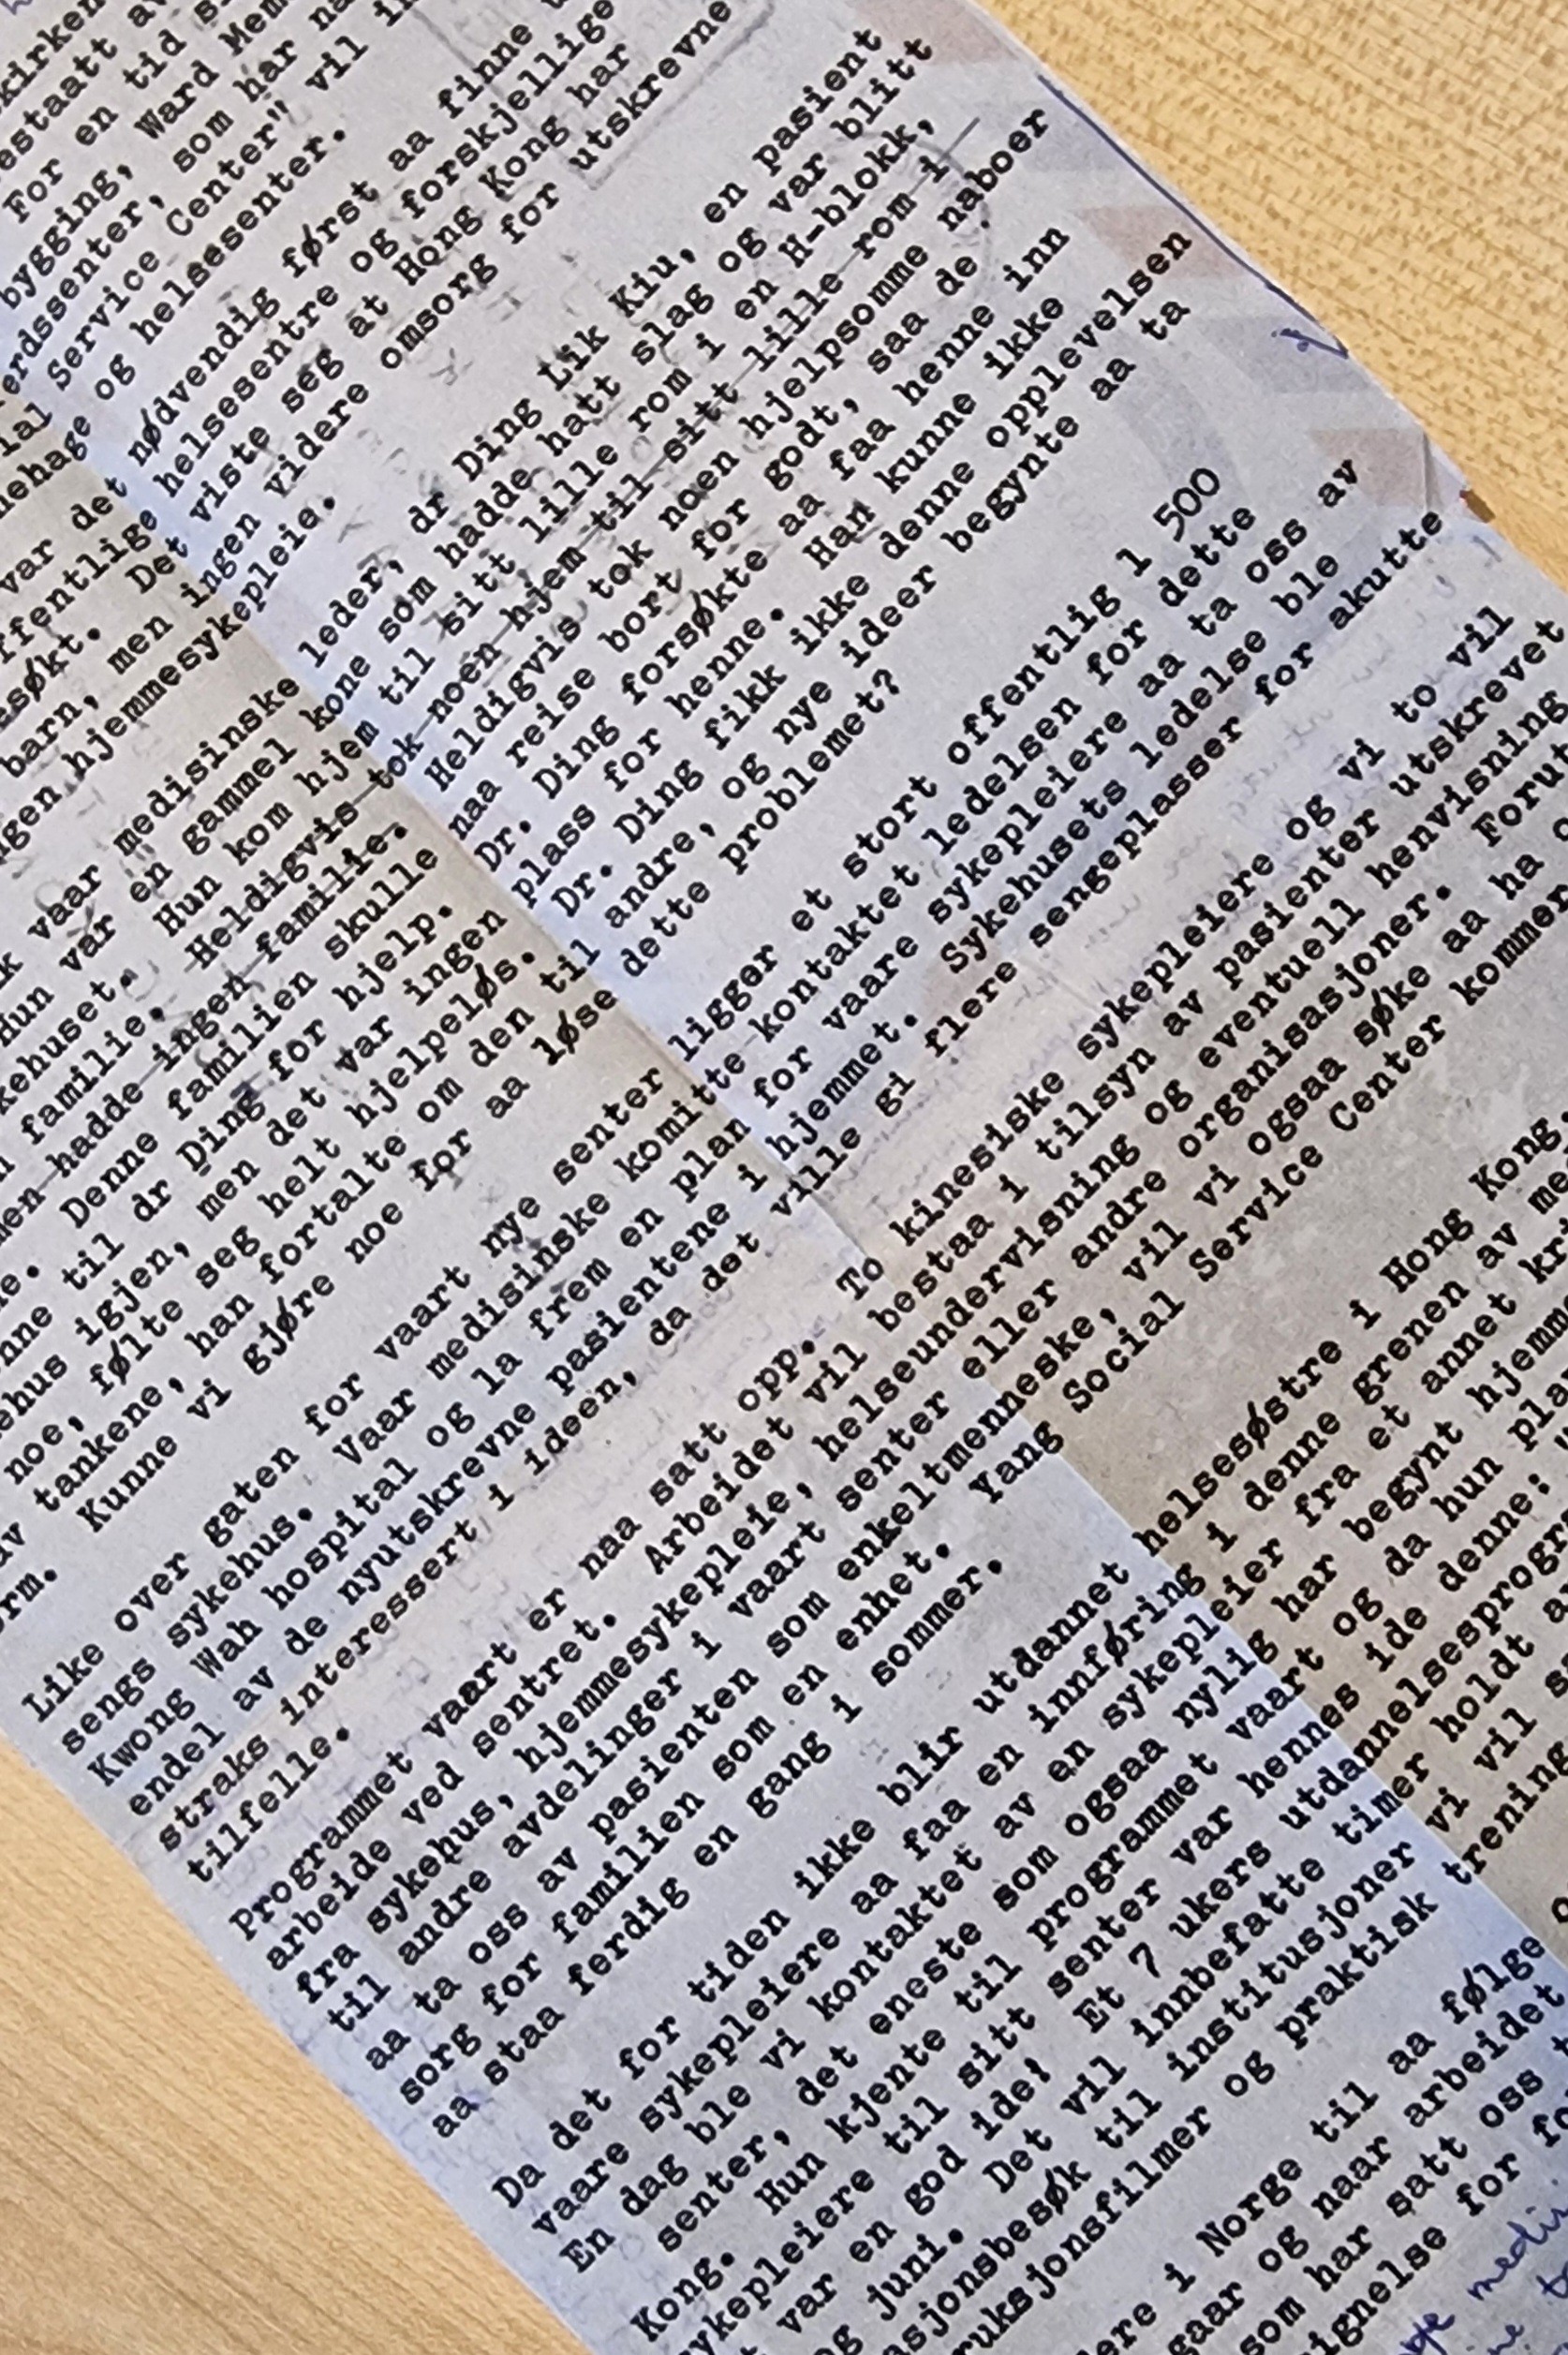 kirken
estaatt av
For en tid
bygging, Ward Mem
erdssenter, som har na
ial Service Center" vil i
ehage og helsesenter.
var det nødvendig først aa finne u
ffentlige helsesentre og forskjellige
esøkt. Det viste seg at Hong Kong har
barn, men ingen videre omsorg for utskrevne
ngen hjemmesykepleie.
k vaar medisinske leder, dr Ding Lik Kiu, en pasient
Hun var en gammel kone som hadde hatt slag og var blitt
kehuset. Hun kom hjem til sitt lille rom i en H-blokk,
familie. Heldigvis tok noen hjem til sitt lille rom i
men hadde ingen familie. Heldigvis tok noen hjelpsomme naboer
ne. Denne familien skulle maa reise bort for godt, saa de
nne til dr Ding for hjelp. Dr. Ding forsøkte aa faa henne inn
ehus igjen, men det var ingen plass for henne. Han kunne ikke
noe, følte seg helt hjelpeløs. Dr. Ding fikk ikke denne opplevelsen
av tankene, han fortalte om den til andre, og nye ideer begynte aa ta
orm. Kunne vi gjøre noe for aa løse dette problemet?
Like over gaten for vaart nye senter ligger et stort offentlig 1 500
sengs sykehus. Vaar medisinske komitte kontaktet ledelsen for dette
Kwong Wah hospital og la frem en plan for vaare sykepleiere aa ta oss av
endel av de nyutskrevne pasientene i hjemmet. Sykehusets ledelse ble
straks interessert i ideen, da det ville gi flere sengeplasser for akutte
tilfelle.
Programmet vaart er naa satt opp. To kinesiske sykepleiere og vi to vil
arbeide ved sentret. Arbeidet vil bestaa i tilsyn av pasienter utskrevet
fra sykehus, hjemmesykepleie, helseundervisning og eventuell henvisning
til andre avdelinger i vaart senter eller andre organisasjoner. Forut
aa ta oss av pasienten som enkeltmenneske, vil vi ogsaa søke aa ha o
sorg for familien som en enhet. Yang Social Service Center kommer
aa staa ferdig en gang i sommer.
Da det for tiden ikke blir utdannet helsesøstre i Hong Kong,
vaare sykepleiere aa faa en innføring i denne grenen av me
En dag ble vi kontaktet av en sykepleier fra et annet kri
senter, det eneste som ogsaa nylig har begynt hjemm
Kong. Hun kjente til programmet vaart og da hun pla
sykepleiere til sitt senter var hennes ide denne:
t var en god ide! Et 7 ukers utdannelsesprogr
og juni. Det vil innbefatte timer holdt a
asjonsbesøk til institusjoner vi vil
ruksjonsfilmer og praktisk trening
ere i Norge til aa følge
gaar og naar arbeidet
som har satt oss
ignelse for